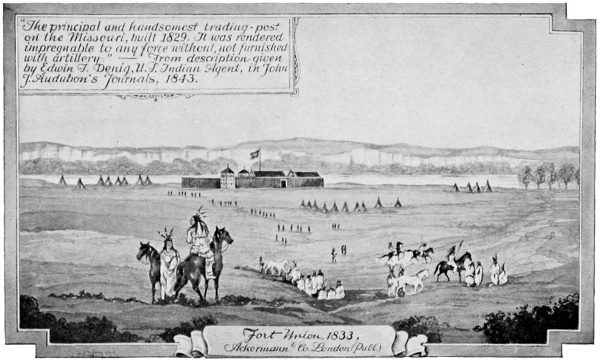 "The principal and handsomest trading-post
on the Missouri, built 1829. It was rendered
impregnable to any force without, not furnished
with artillery." — From description given
by Edwin T. Denig, U.S. Indian Agent, in John
J. Audubon's Journals, 1843.
Fort Union, 1833,
Ackermann & Co. London (Publ)